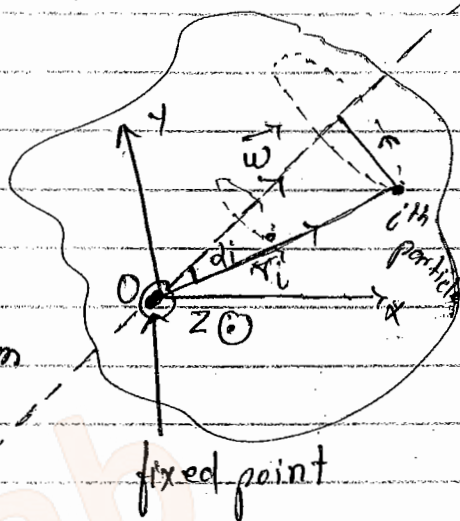 y
w⃗
r
ith
particle
αi
r⃗i
O
x
Z ⊙
fixed point